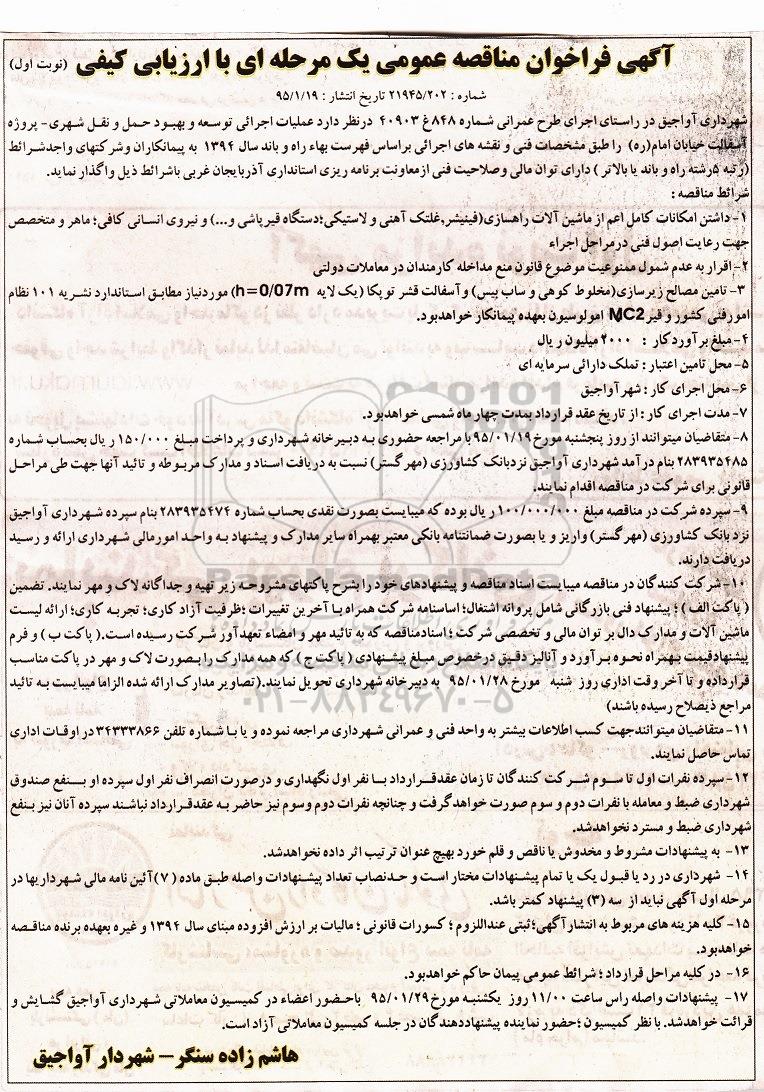 آگهی فراخوان مناقصه عمومی یک مرحله ای با ارزیابی کیفی (نوبت اول)
شماره : ۲۱۹۴۵/۲۰۲ تاریخ انتشار : ۹۵/۱/۱۹
شهرداری آواجیق در راستای اجرای طرح عمرانی شماره ۸۴۸غ ۴۰۹۰۳ درنظر دارد عملیات اجرائی توسعه و بهبود حمل و نقل شهری- پروژه
آسفالت خیابان امام(ره) را طبق مشخصات فنی و نقشه های اجرائی براساس فهرست بهاء راه و باند سال ۱۳۹۴ به پیمانکاران وشرکتهای واجدشرائط
(رتبه ۵رشته راه و باند یا بالاتر) دارای توان مالی وصلاحیت فنی ازمعاونت برنامه ریزی استانداری آذربایجان غربی باشرائط ذیل واگذار نماید.
شرائط مناقصه :
۱- داشتن امکانات کامل اعم از ماشین آلات راهسازی(فینیشر,غلتک آهنی و لاستیکی؛دستگاه قیرپاشی و...) و نیروی انسانی کافی؛ ماهر و متخصص
جهت رعایت اصول فنی درمراحل اجراء
۲- اقرار به عدم شمول ممنوعیت موضوع قانون منع مداخله کارمندان در معاملات دولتی
۳- تامین مصالح زیرسازی(مخلوط کوهی و ساب بیس) وآسفالت قشر توپکا (یک لایه h=0/07m) موردنیاز مطابق استاندارد نشریه ۱۰۱ نظام
امورفنی کشور و قیر MC2 امولوسیون بعهده پیمانکار خواهدبود.
۴- مبلغ برآوردکار : ۲۰۰۰ میلیون ریال
۵- محل تامین اعتبار : تملک دارائی سرمایه ای
۶- محل اجرای کار : شهر آواجیق
۷- مدت اجرای کار : از تاریخ عقد قرارداد بمدت چهار ماه شمسی خواهدبود.
۸- متقاضیان میتوانند از روز پنجشنبه مورخ ۹۵/۰۱/۱۹ با مراجعه حضوری به دبیرخانه شهرداری و پرداخت مبلغ ۱۵۰/۰۰۰ ریال بحساب شماره
۲۸۳۹۳۵۴۸۵ بنام درآمد شهرداری آواجیق نزدبانک کشاورزی (مهرگستر) نسبت به دریافت اسناد و مدارک مربوطه و تائید آنها جهت طی مراحل
قانونی برای شرکت در مناقصه اقدام نمایند.
۹- سپرده شرکت در مناقصه مبلغ ۱۰۰/۰۰۰/۰۰۰ ریال بوده که میبایست بصورت نقدی بحساب شماره ۲۸۳۹۳۵۴۷۴ بنام سپرده شهرداری آواجیق
نزد بانک کشاورزی (مهرگستر) واریز و یا بصورت ضمانتنامه بانکی معتبر بهمراه سایر مدارک و پیشنهاد به واحد امورمالی شهرداری ارائه و رسید
دریافت دارند.
۱۰- شرکت کنندگان در مناقصه میبایست اسناد مناقصه و پیشنهادهای خود را بشرح پاکتهای مشروحه زیر تهیه و جداگانه لاک و مهر نمایند. تضمین
( پاکت الف ) ؛ پیشنهاد فنی بازرگانی شامل پروانه اشتغال؛ اساسنامه شرکت همراه با آخرین تغییرات ؛ظرفیت آزاد کاری؛ تجربه کاری؛ ارائه لیست
ماشین آلات و مدارک دال بر توان مالی و تخصصی شرکت ؛ اسنادمناقصه که به تائید مهر و امضاء تعهدآور شرکت رسیده است.( پاکت ب ) و فرم
پیشنهادقیمت بهمراه نحوه برآورد و آنالیز دقیق درخصوص مبلغ پیشنهادی ( پاکت ج ) که همه مدارک را بصورت لاک و مهر در پاکت مناسب
قرارداده و تا آخر وقت اداری روز شنبه مورخ ۹۵/۰۱/۲۸ به دبیرخانه شهرداری تحویل نمایند.(تصاویر مدارک ارائه شده الزاما میبایست به تائید
مراجع ذیصلاح رسیده باشند)
۱۱- متقاضیان میتوانندجهت کسب اطلاعات بیشتر به واحد فنی و عمرانی شهرداری مراجعه نموده و یا با شماره تلفن ۳۴۳۳۳۸۶۶ در اوقات اداری
تماس حاصل نمایند.
۱۲- سپرده نفرات اول تا سوم شرکت کنندگان تا زمان عقدقرارداد با نفر اول نگهداری و درصورت انصراف نفر اول سپرده او بنفع صندوق
شهرداری ضبط و معامله با نفرات دوم و سوم صورت خواهدگرفت و چنانچه نفرات دوم وسوم نیز حاضر به عقدقرارداد نباشند سپرده آنان نیز بنفع
شهرداری ضبط و مسترد نخواهدشد.
۱۳- به پیشنهادات مشروط و مخدوش یا ناقص و قلم خورد بهیچ عنوان ترتیب اثر داده نخواهدشد.
۱۴- شهرداری در رد یا قبول یک یا تمام پیشنهادات مختار است و حدنصاب تعداد پیشنهادات واصله طبق ماده (۷) آئین نامه مالی شهرداریها در
مرحله اول آگهی نباید از سه (۳) پیشنهاد کمتر باشد.
۱۵- کلیه هزینه های مربوط به انتشار آگهی؛ثبتی عنداللزوم ؛ کسورات قانونی ؛ مالیات بر ارزش افزوده مبنای سال ۱۳۹۴ و غیره بعهده برنده مناقصه
خواهدبود.
۱۶- در کلیه مراحل قرارداد ؛ شرائط عمومی پیمان حاکم خواهدبود.
۱۷- پیشنهادات واصله راس ساعت ۱۱/۰۰ روز یکشنبه مورخ ۹۵/۰۱/۲۹ باحضور اعضاء در کمیسیون معاملاتی شهرداری آواجیق گشایش و
قرائت خواهدشد. با نظر کمیسیون ؛حضور نماینده پیشنهاددهندگان در جلسه کمیسیون معاملاتی آزاد است.
هاشم زاده سنگر – شهردار آواجیق
۰۲۱-۸۸۳۴۹۶۷۰-۵